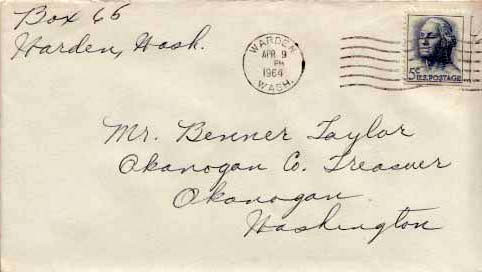 Box 66
Warden, Wash.
WARDEN
APR 9
PM
1964
WASH.
5¢ U.S. POSTAGE
Mr. Benner Taylor
Okanogan Co. Treasuer
Okanogan
Washington